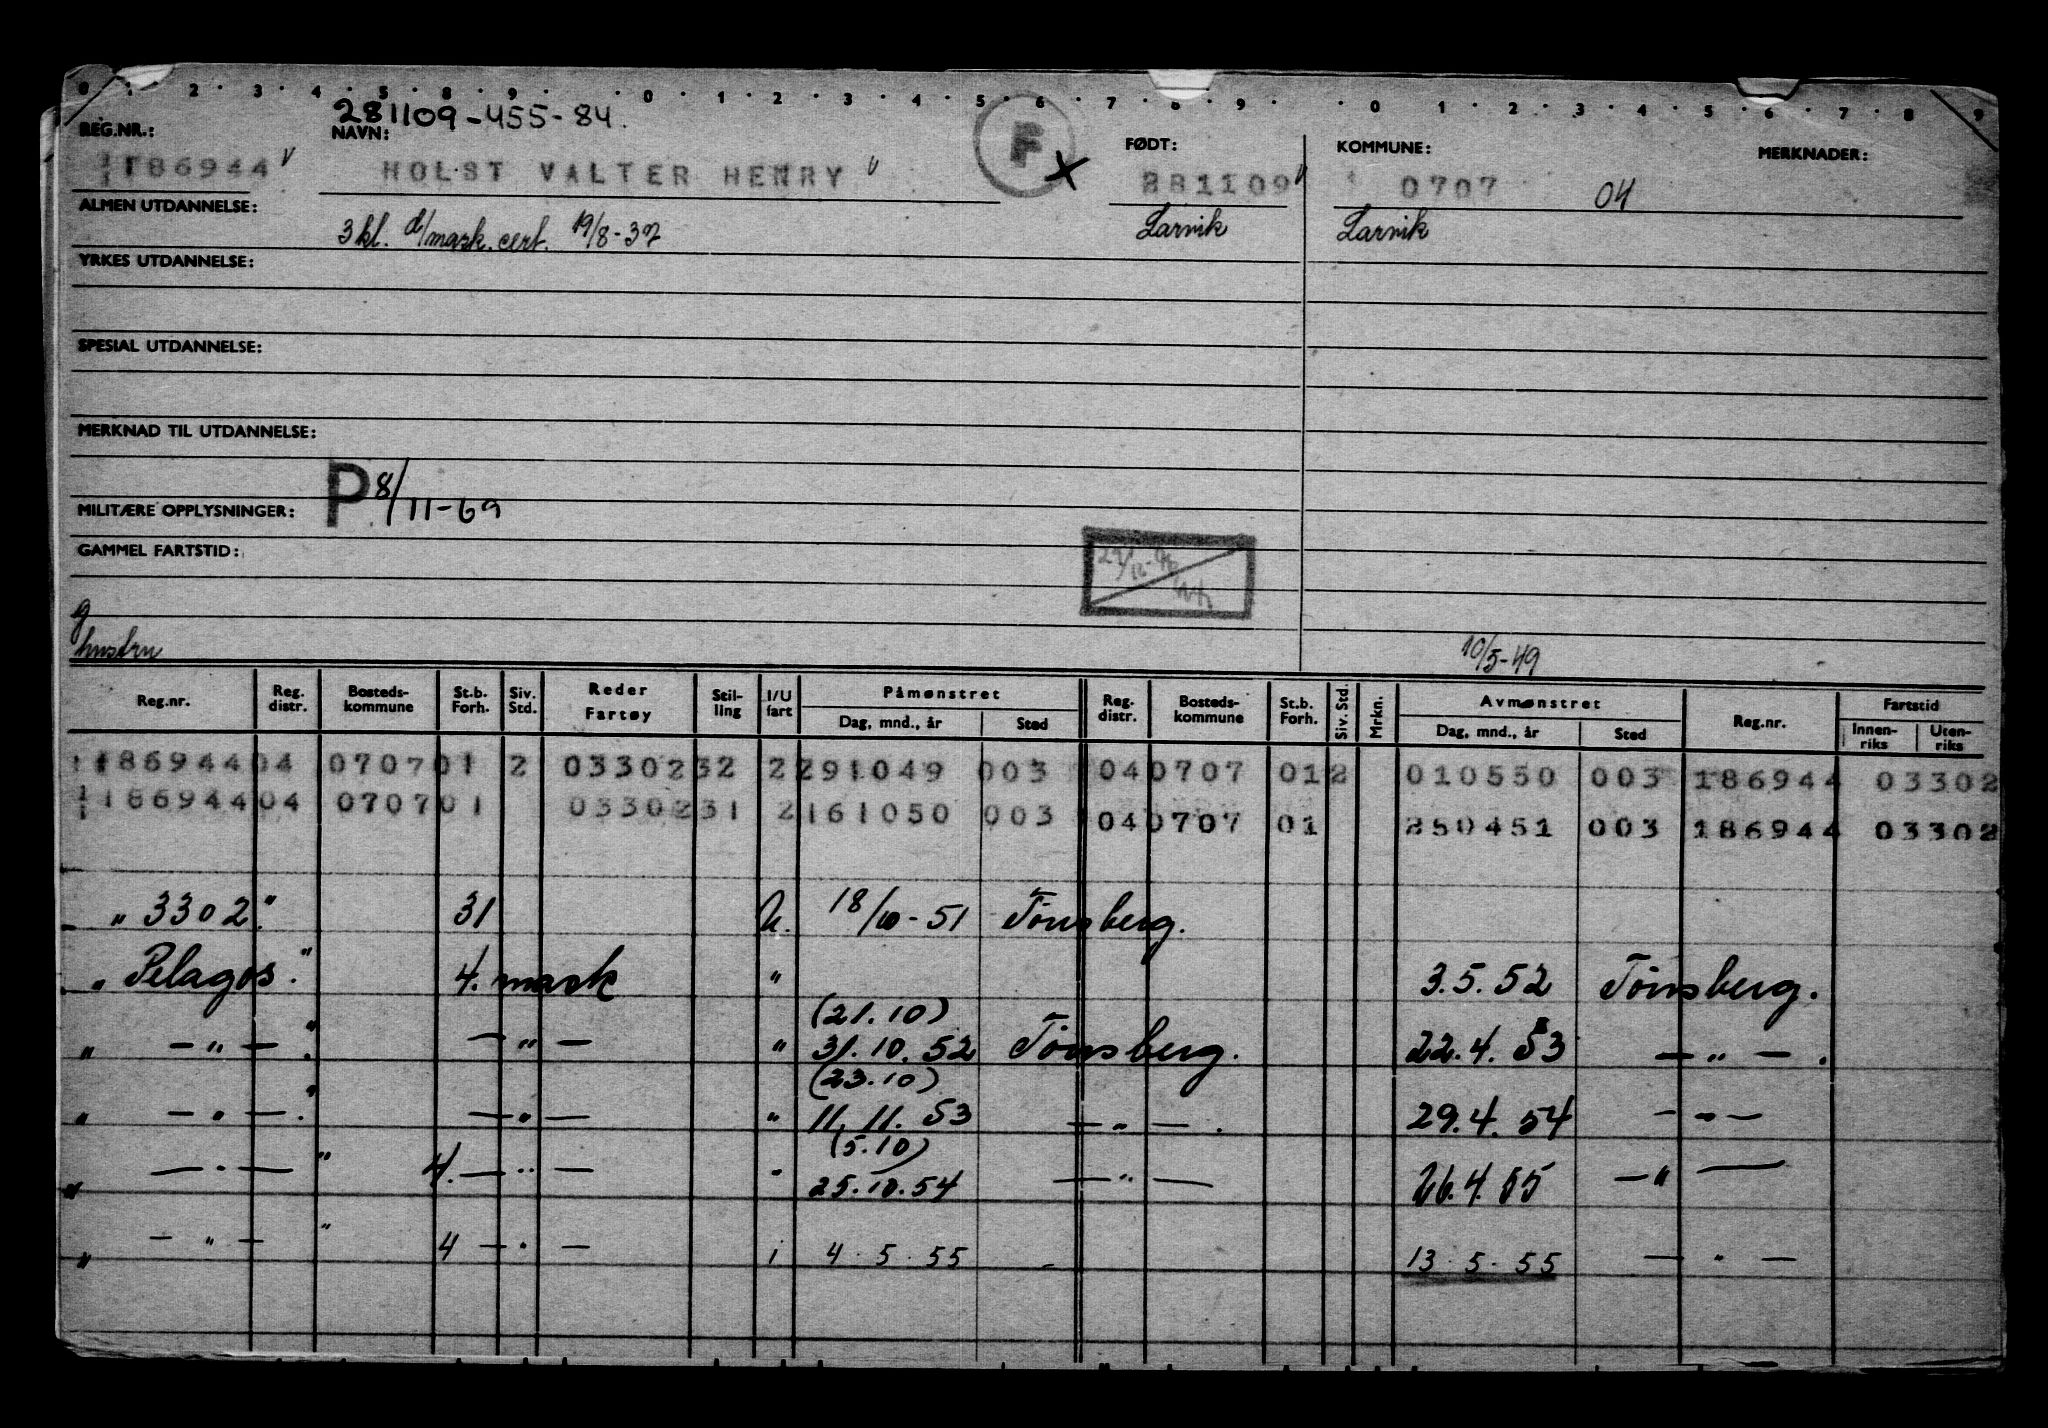 0 1 2 3 4 5 8 9 0 1 2 3 4 5 6 7 8 9 0 1 2 3 4 5 6 7 8 9
281109-455-84.
REG.NR.: NAVN: F X FØDT: KOMMUNE: MERKNADER:
186944 v HOLST VALTER HENRY v 281109 v 0707 04
ALMEN UTDANNELSE: 3 kl. d/mask. cert. 19/8-37 Larvik Larvik
YRKES UTDANNELSE:
SPESIAL UTDANNELSE:
MERKNAD TIL UTDANNELSE:
P 8/11-69
MILITÆRE OPPLYSNINGER:
GAMMEL FARTSTID:
g
hustru 10/5-49
Reg.nr. Reg. distr. Bosteds-kommune St.b. Forh. Siv. Std. Reder Fartøy Stil-ling I/U fart Påmønstret Dag, mnd., år Sted Reg. distr. Bosteds-kommune St.b. Forh. Siv. Std. Mrkn. Avmønstret Dag, mnd., år Sted Reg.nr. Fartstid Innen-riks Uten-riks
186944 04 0707 01 2 03302 32 2 291049 003 04 0707 01 2 010550 003 186944 03302
186944 04 0707 01 03302 31 2 161050 003 04 0707 01 250451 003 186944 03302
" 3302." 31 U. 18/10-51 Tönsberg.
" Pelagos." 4. mask " 3.5.52 Tönsberg.
(21.10)
" — " — ." — " — " 31.10.52 Tönsberg. 22.4.53 — " — .
(23.10)
" — " — ." — " — " 11.11.53 — " — . 29.4.54 — " —
(5.10)
" — " — " 4. — " — " 25.10.54 — " — 26.4.55 — " —
" — " — " 4 — " — i 4.5.55 - 13.5.55 — " —